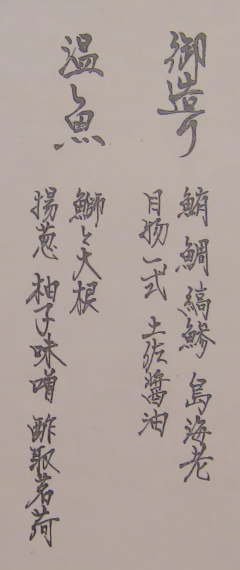 御造り
鮪 鯛 縞鯵 島海老
目物一式 土佐醤油
温魚
鰤と大根
揚葱 柚子味噌 酢取茗荷